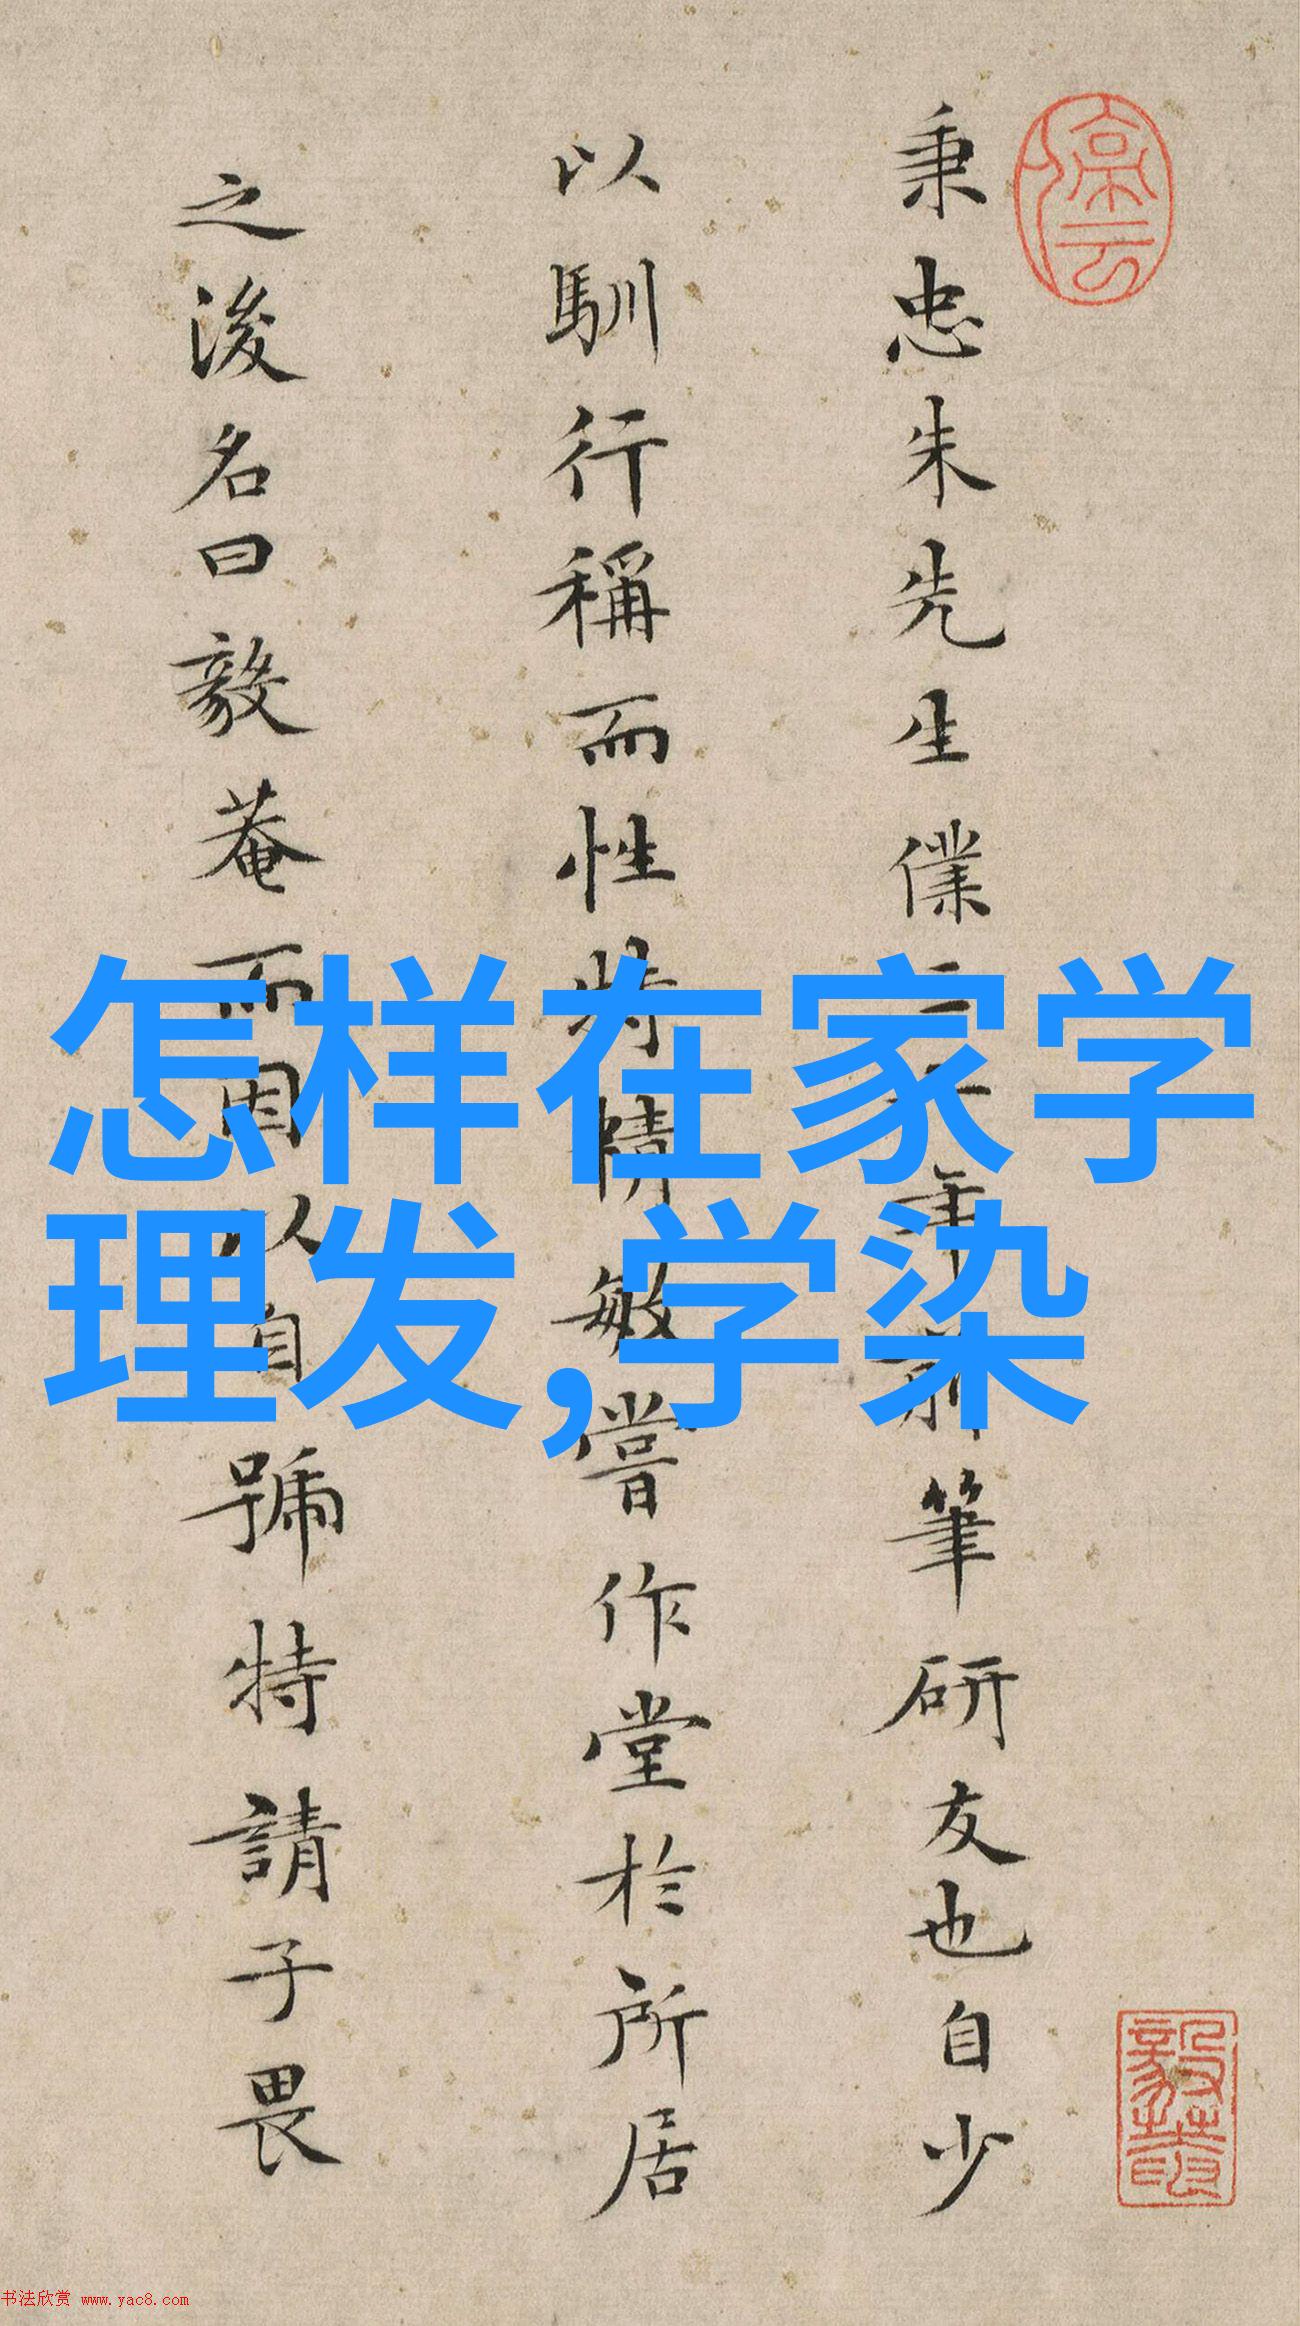 秉忠朱先生僕二十年前筆研友也自少
以馴行稱而性特精敏嘗作堂於所居
之後名曰毅菴而因以自號特請予畏
怎样在家学
理发,学染
书法欣赏 www.yac8.com